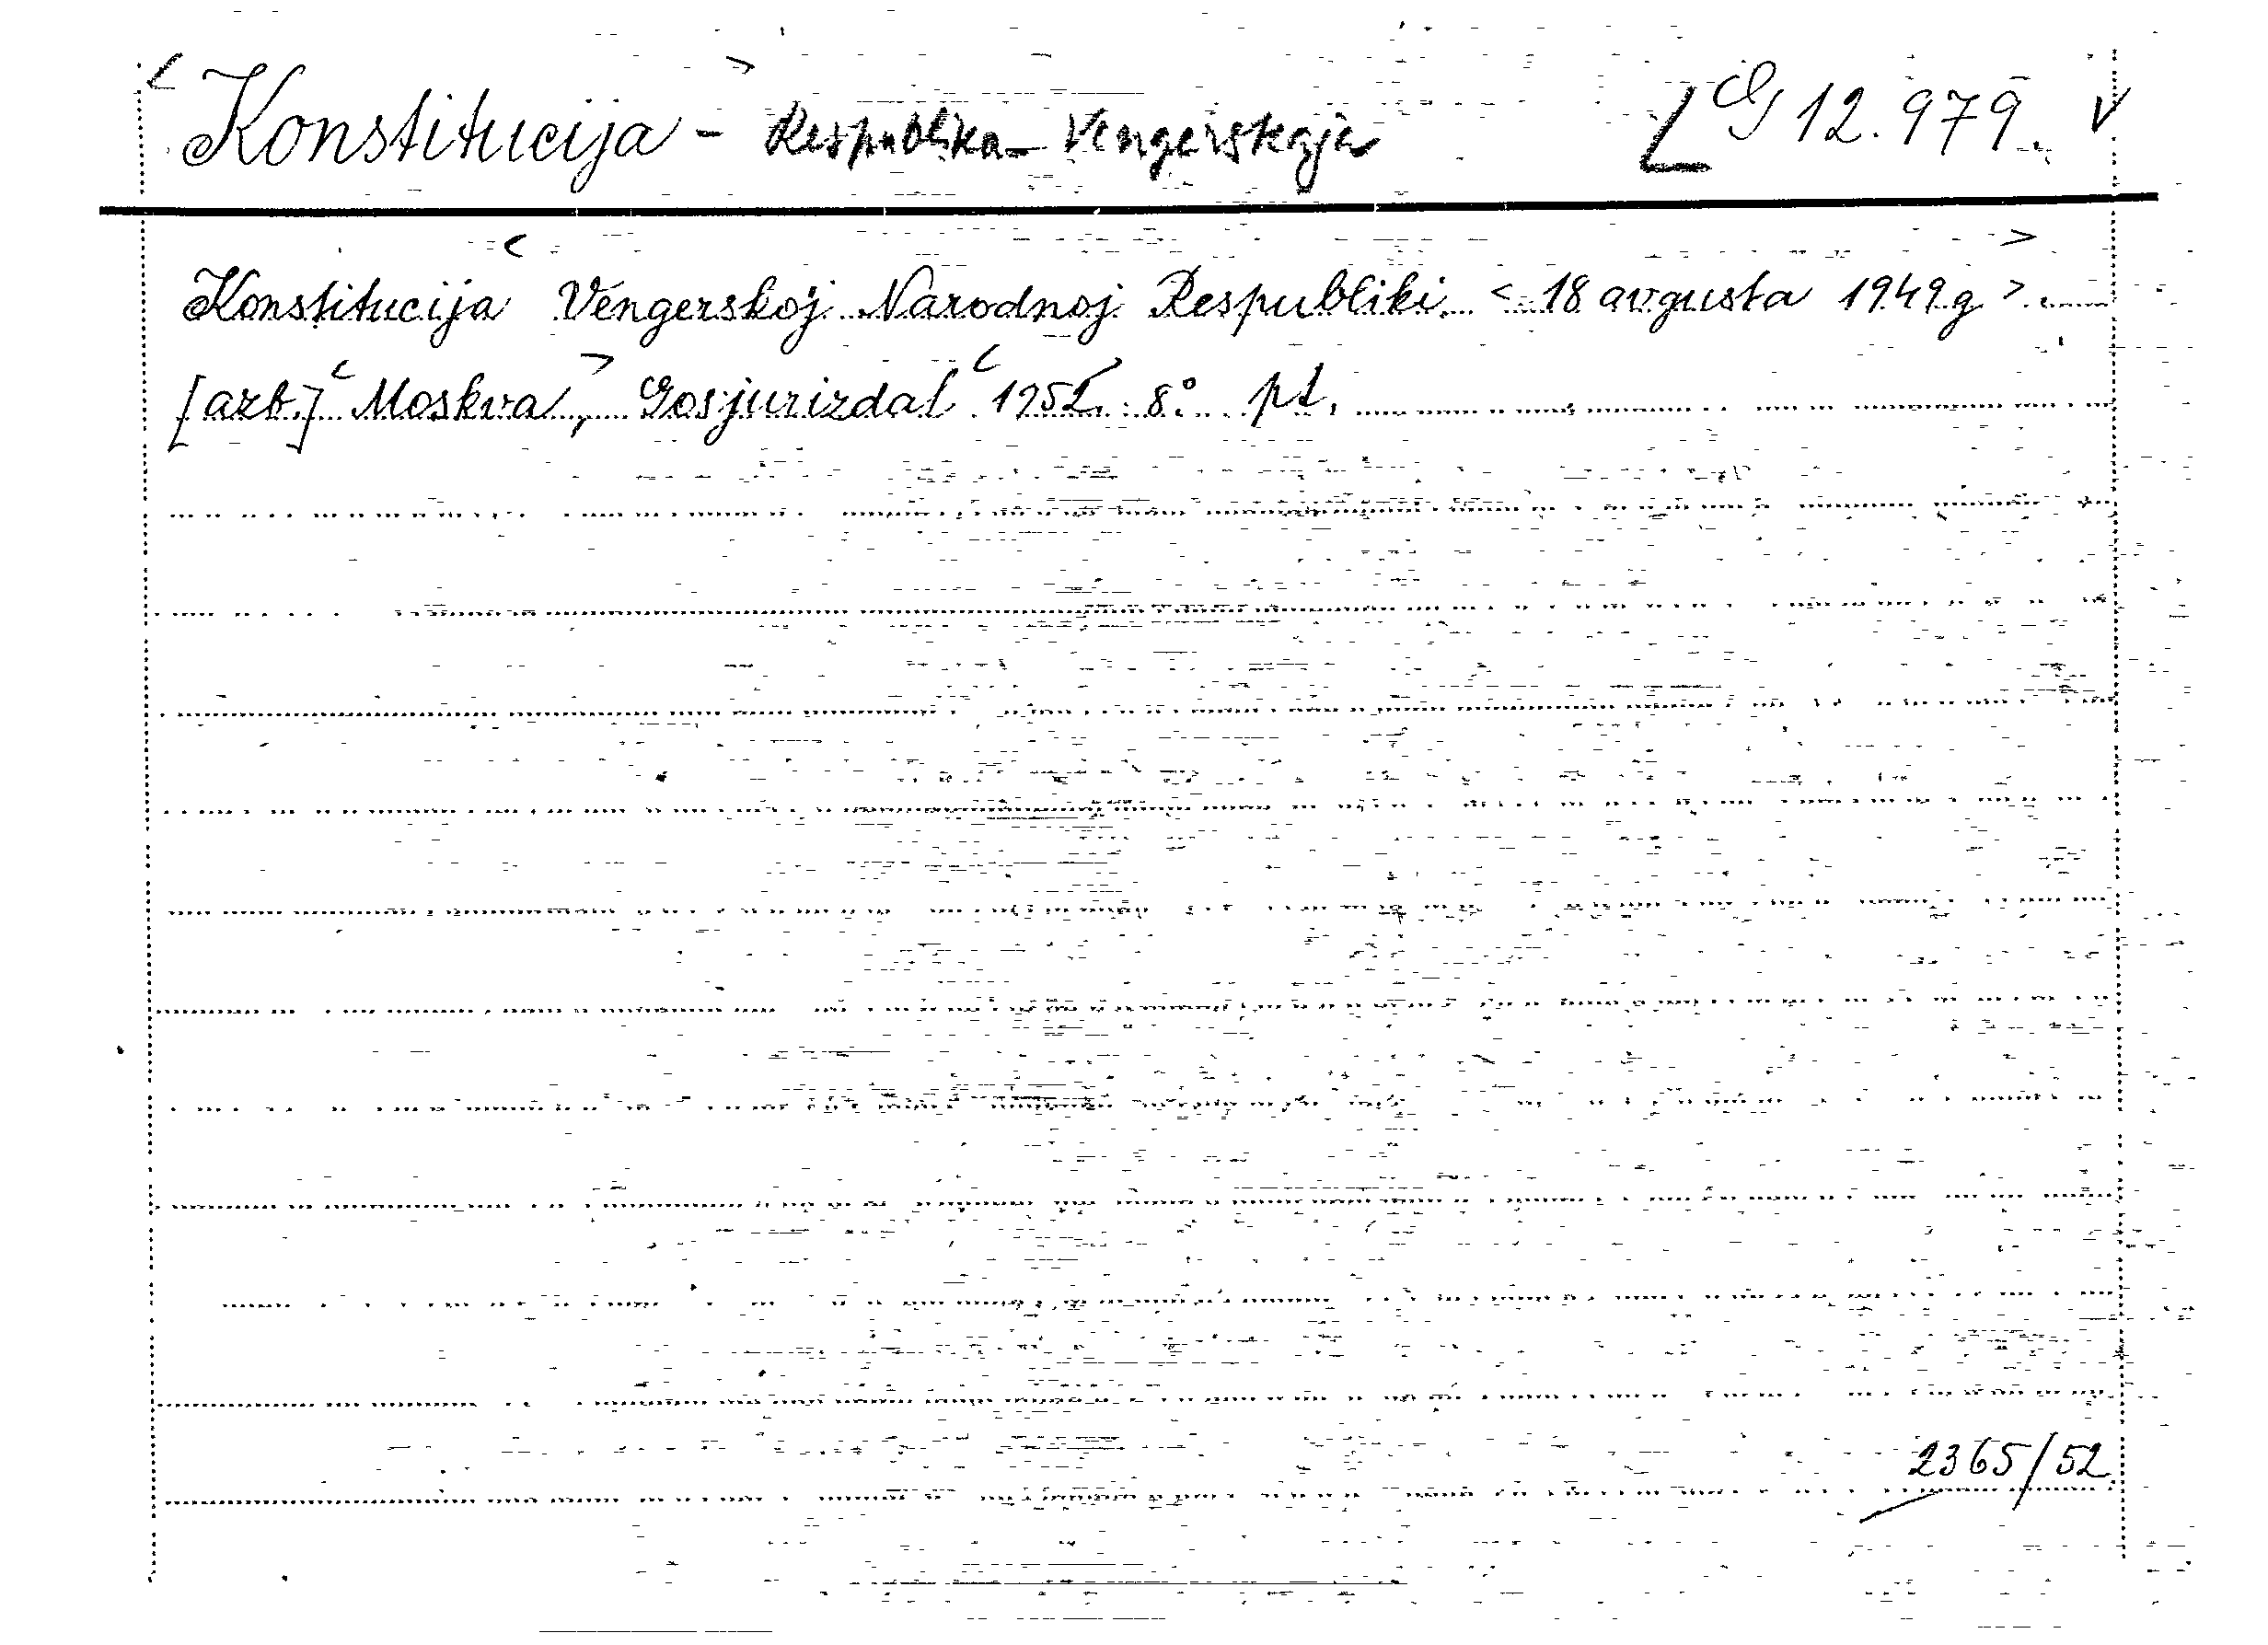 < Konstitucija > - Respublika - Vengerskaja 12.979. v
Konstitucija < Vengerskoj Narodnoj Respubliki. < 18 avgusta 1949.g > . >
[azb.] < Moskva, > Gosjurizdat < 1952. 8° pt.
2365/52